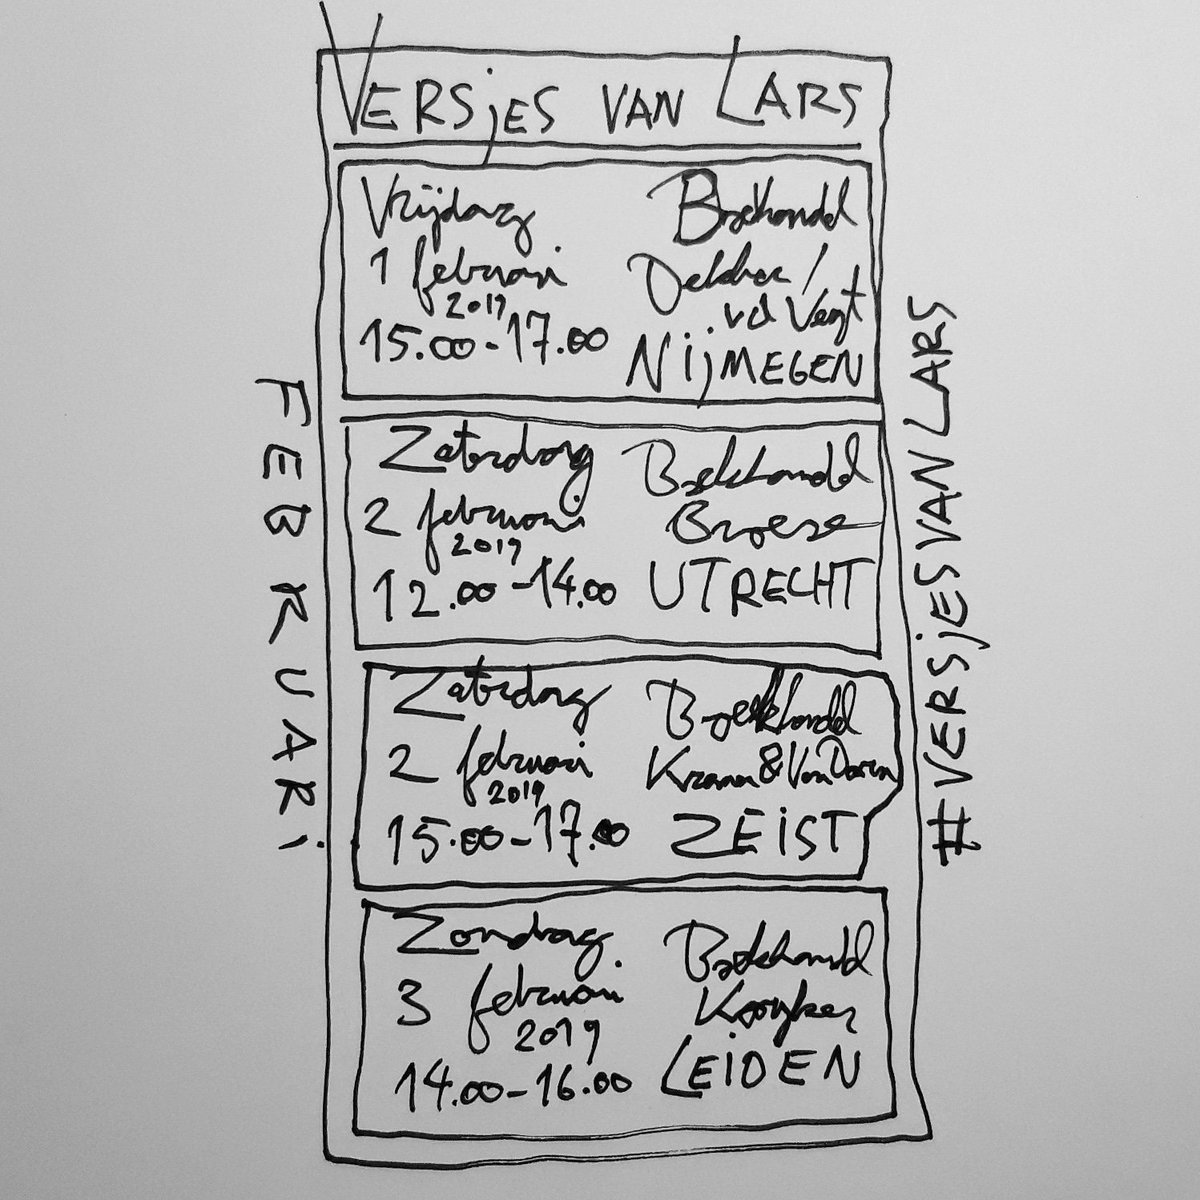 VERSjES VAN LARS
Vrijdag
1 februari
2019
15.00-17.00
Boekhandel
Dekker/
vd Vegt
NijMEGEN
Zaterdag
2 februari
2019
12.00-14.00
Boekhandel
Broese
UTRECHT
Zaterdag
2 februari
2019
15.00-17.00
Boekhandel
Kramer & Van Doorn
ZEiST
Zondag
3 februari
2019
14.00-16.00
Boekhandel
Kooyker
LEiDEN
FEBRUARi
#VERSjESVANLARS